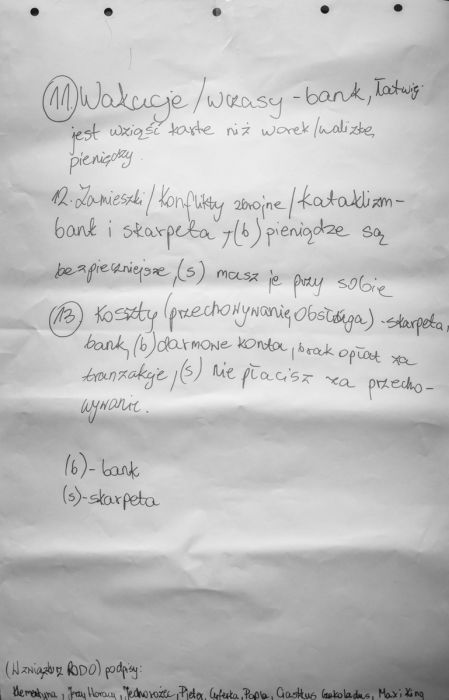 11. Wakacje/wczasy - bank, łatwiej
jest wziąść kartę niż worek/walizkę
pieniędzy.
12. Zamieszki/Konflikty zbrojne/kataklizm-
bank i skarpeta, (b) pieniądze są
bezpieczniejsze, (s) masz je przy sobie
13) Koszty (przechowywanie, obsługa) - skarpeta,
bank, (b) darmowe konta, brak opłat za
tranzakcje, (s) nie płacisz za przecho-
wywanie.
(b) - bank
(s) - skarpeta
(W związku z RODO) podpisy:
Klementyna, Jerzy Horacy, Jednorożec, Pjeter, Cyferka, Papla, Ciastkus Czekoladus, Maxi King